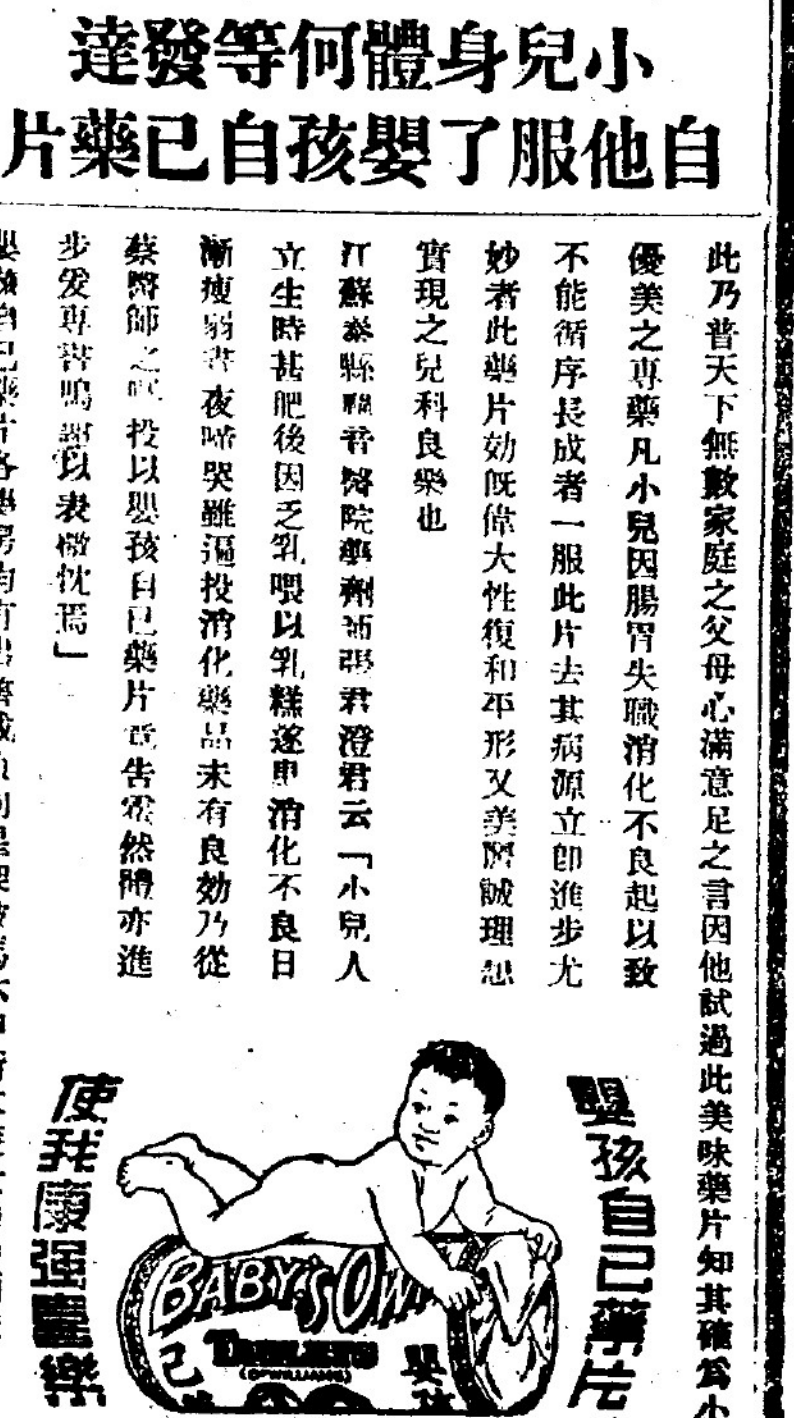 小兒身體何等發達
自他服了嬰孩自己藥片
此乃普天下無數家庭之父母心滿意足之言因他試過此美味藥片知其確爲小
優美之專藥凡小兒因腸胃失職消化不良起以致
不能循序長成者一服此片去其病源立卽進步尤
妙者此藥片効旣偉大性復和平形又美誠理想
實現之兒科良藥也
江蘇泰縣福音醫院藥劑師張君澄君云「小兒人
立生時甚肥後因乏乳喂以乳糕遂患消化不良日
漸瘦弱晝夜啼哭雖遍投消化藥品未有良効乃從
蔡醫師之投以嬰孩自己藥片告霍然體亦進
步爰專書鳴謝以表微忱焉」
嬰孩自己藥片各藥房均有出售或
嬰孩自己藥片
使我康强喜樂
BABY'S OWN
TABLETS
(DR WILLIAMS)
嬰孩
己